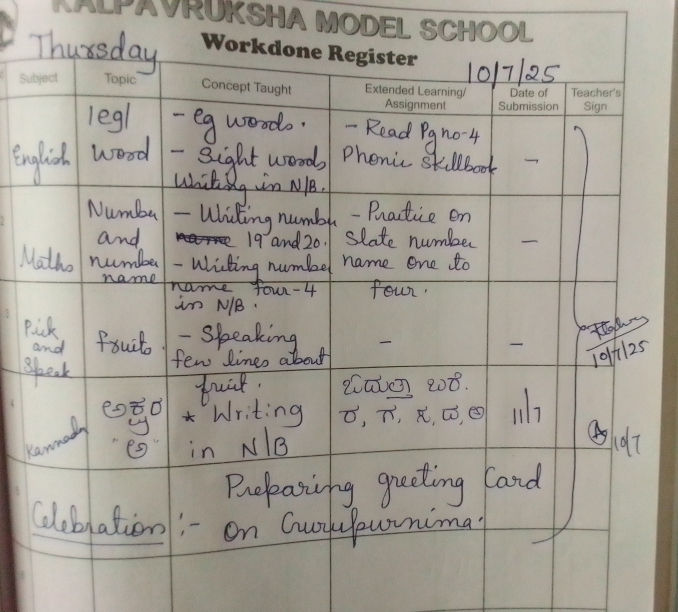 KALPAVRUKSHA MODEL SCHOOL
Workdone Register
Thursday
10/7/25
Subject Topic Concept Taught Extended Learning/ Assignment Date of Submission Teacher's Sign
1 English
legl
word
- eg words.
- Sight words
Writing in N/B.
- Read Pg no-4
Phonic skillbook
-
2 Maths
Number
and
number
name
- Writing number
19 and 20.
- Writing number
name four-4
in N/B.
- Practice on
Slate number
name one to
four.
-
3 Pick
and
Speak
fruits.
- Speaking
few lines about
fruit.
-
-
10/7/25
4 Kannada
ಅಕ್ಷರ
* Writing
in N/B
ಬರೆ.
ರ, ಗ, ಸ, ದ, ಅ
11/7
10/7
5 Celebration :-
Preparing greeting Card
on Gurupurnima.